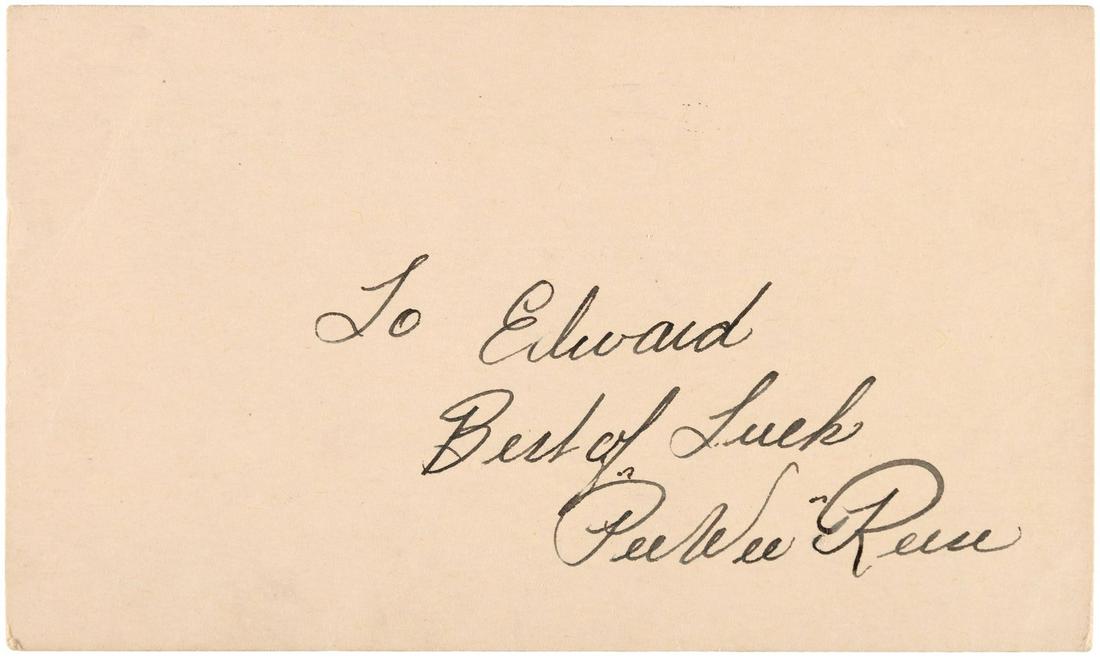 To Edward
Best of Luck
"PeeWee" Reese